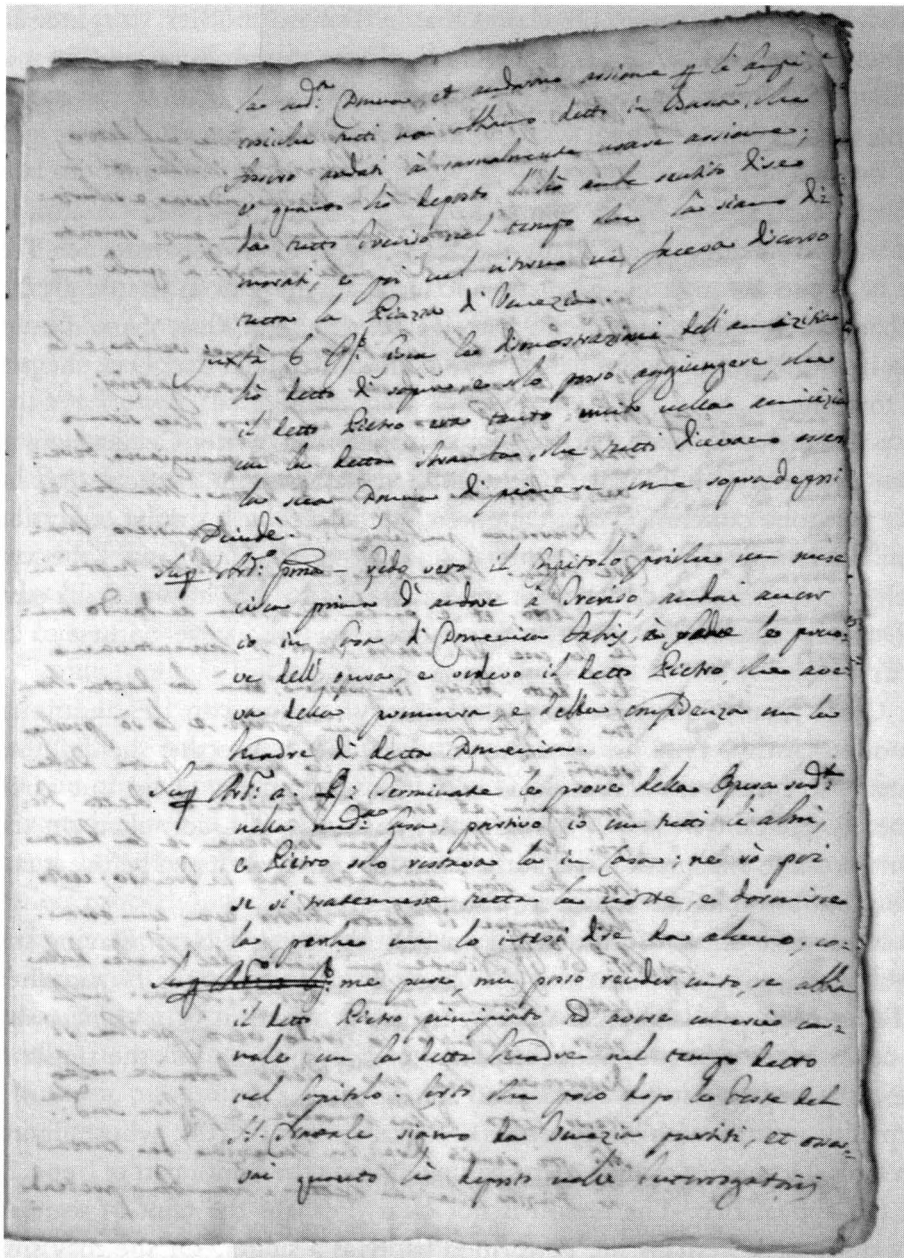 la med.ma Domenica, et andarne assieme li
tutti noi abbiamo detto in che
fossero andati à carnalmente usare assieme;
e quanto hò deposto l'hò anche sentito dire
da tutto Treviso nel tempo che là siamo di:
morati, e poi nel ritorno ne faceva discorso
tutta la Piazza di Venezia.
Juxtà 6 Circa le dimostrazioni dell'amicizia
hò detto di sopra, e solo posso aggiungere, che
il detto Pietro era tanto unito nella amicizia
con la detta, che tutti dicevano esser
la sua Donna di piacere, come sopra degni
Deindè.
Sup. Art.o primo – vero il Capitolo, perche un mese
circa prima d'andare à Treviso, andai ancor
io in Casa di Domenica, à le pruo:
ve dell'opera, e vedevo il detto Pietro, che ave:
va della premura, e della confidenza con la
Madre di detta Domenica.
Sup. Art.o 2. Terminate le prove della Opera sud.ta
nella med.ma Casa, partivo io con tutti li altri,
e Pietro solo restava là in Casa; ne sò poi
se si trattenesse tutta la notte, e dormisse
là perche non lo intesi dire da alcuno, co:
me pure, non posso render conto, se abbia
il detto Pietro principiato ad avere comercio car:
nale con la detta Madre nel tempo detto
nel Capitolo. Certo che poco dopo le Feste del
S. Natale siamo da Venezia partiti, et
quanto hò deposto nelli Interrogatorij